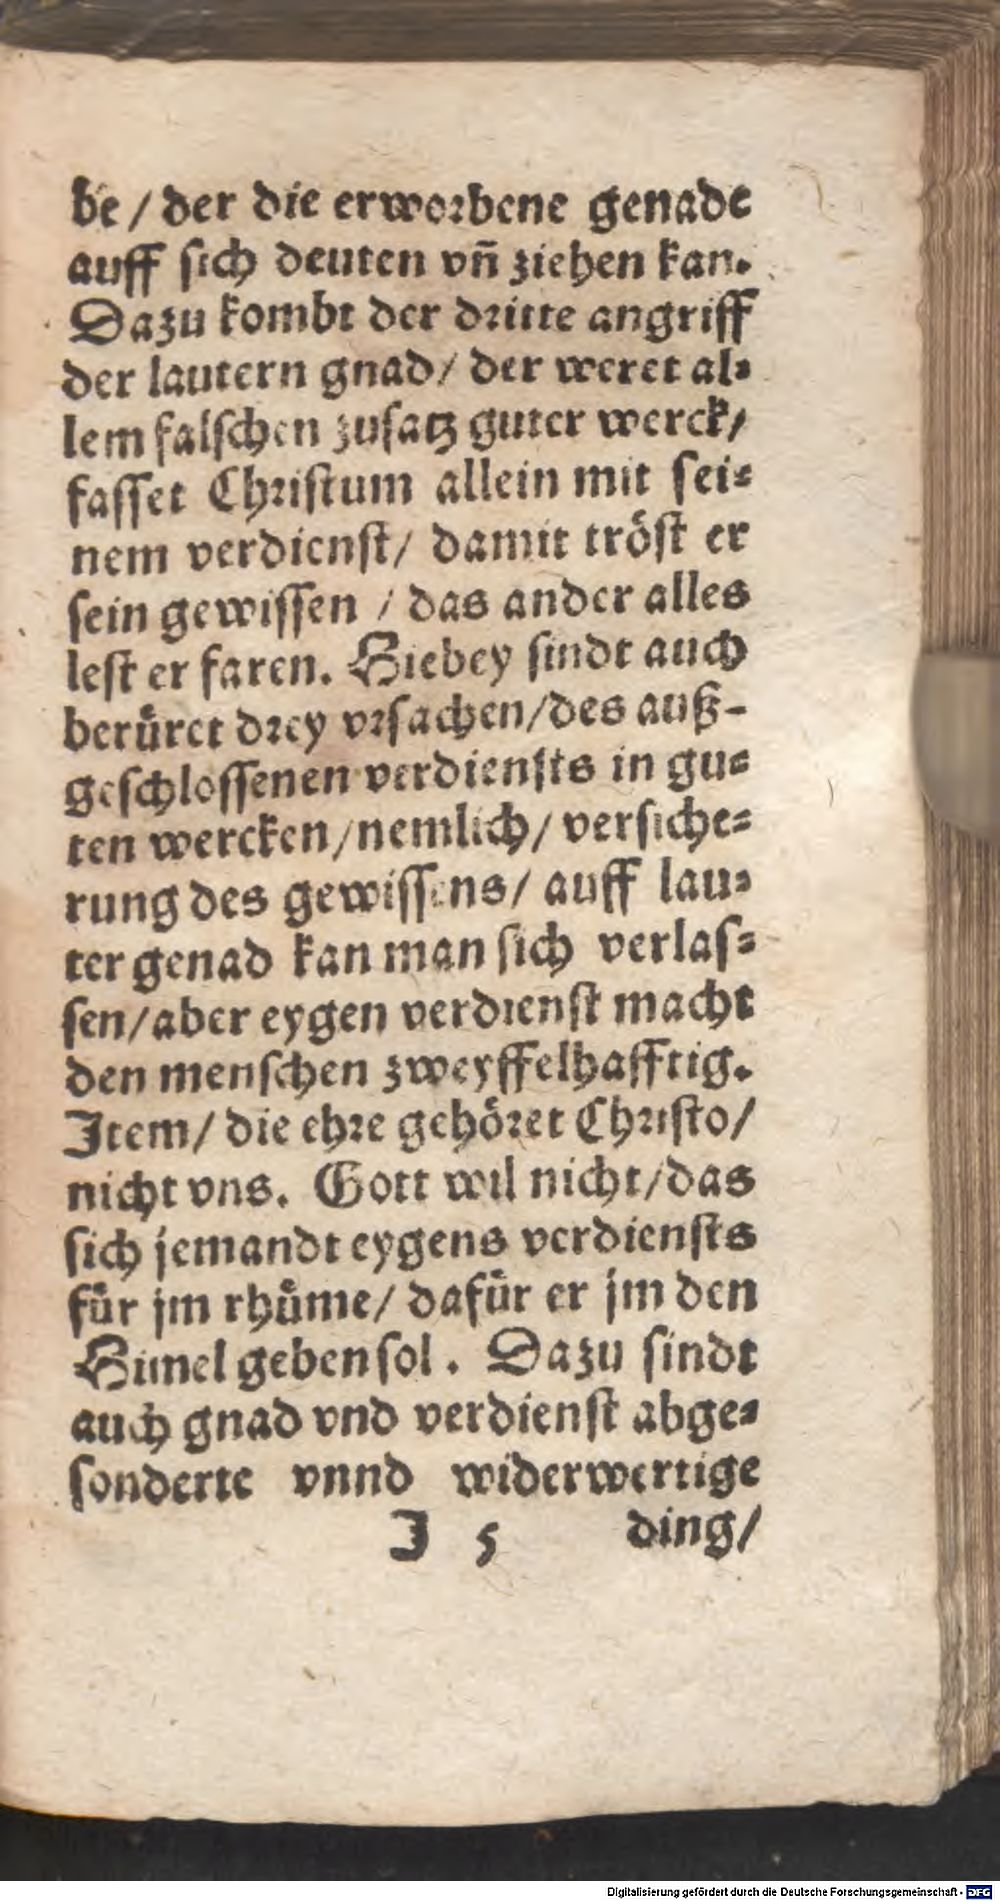 be / der die erworbene genade
auff sich deuten vñ ziehen kan.
Dazu kombt der dritte angriff
der lautern gnad / der weret al⸗
lem falschen zusatz guter werck /
fasset Christum allein mit sei⸗
nem verdienst / damit tröst er
sein gewissen / das ander alles
lest er faren. Hiebey sindt auch
berüret drey vrsachen / des auß-
geschlossenen verdiensts in gu⸗
ten wercken / nemlich / versiche⸗
rung des gewissens / auff lau⸗
ter genad kan man sich verlas⸗
sen / aber eygen verdienst macht
den menschen zweyffelhafftig.
Item / die ehre gehöret Christo /
nicht vns. Gott wil nicht / das
sich jemandt eygens verdiensts
für jm rhüme / dafür er jm den
Himel geben sol. Dazu sindt
auch gnad vnd verdienst abge⸗
sonderte vnnd widerwertige
I 5 ding /
Digitalisierung gefördert durch die Deutsche Forschungsgemeinschaft - DFG